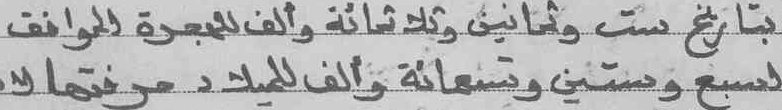 بتاريخ ست وثمانين وثلاثمائة وألف للهجرة الموافق
لسبع وستين وتسعمائة وألف للميلاد